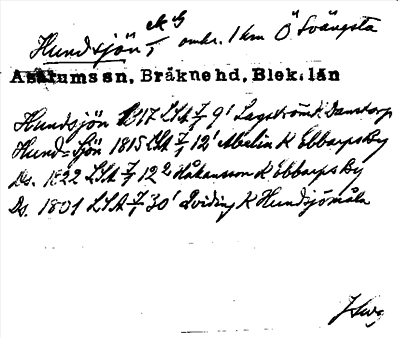 Hundsjön, omkr. 1 km Ö Svängsta
Asarums sn, Bräkne hd, Blek. län
Hundsjön 1817 LSA 7/1 9' Lagström K Danstorp
Hund=Sjön 1815 LSA 7/1 12' Mælin K Ebbarps By
Ds. 1822 LSA 7/1 12² Håkansson K Ebbarps By
Ds. 1801 LSA 7/1 30' Qviding K Hundsjömåla